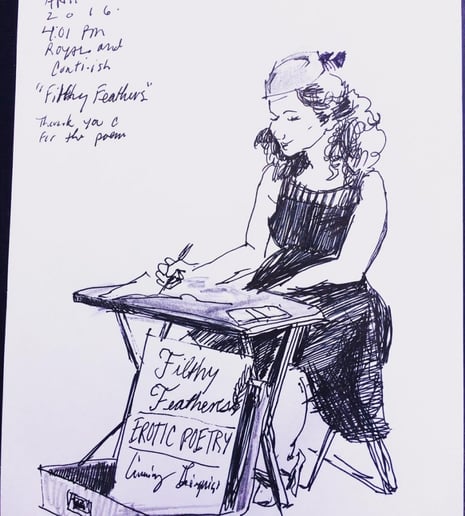 2016.
4:01 PM
Royal and
Conti-ish
"Filthy Feathers"
Thank you C
For the poem
Filthy
Feathers
EROTIC POETRY